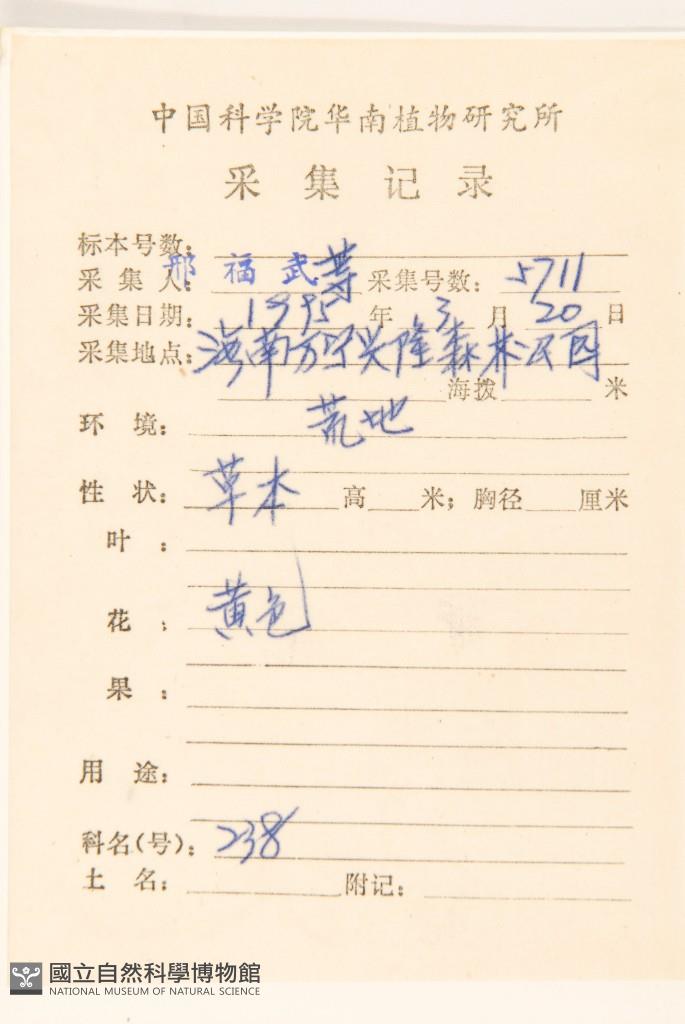 中国科学院华南植物研究所
采集记录
标本号数:
采集人: 邢福武等 采集号数: 5711
采集日期: 1995年3月20日
采集地点: 海南万宁兴隆森林公园
海拨 米
环境: 荒地
性状: 草本 高 米; 胸径 厘米
叶:
花: 黄色
果:
用途:
科名(号): 238
土名: 附记:
國立自然科學博物館
NATIONAL MUSEUM OF NATURAL SCIENCE